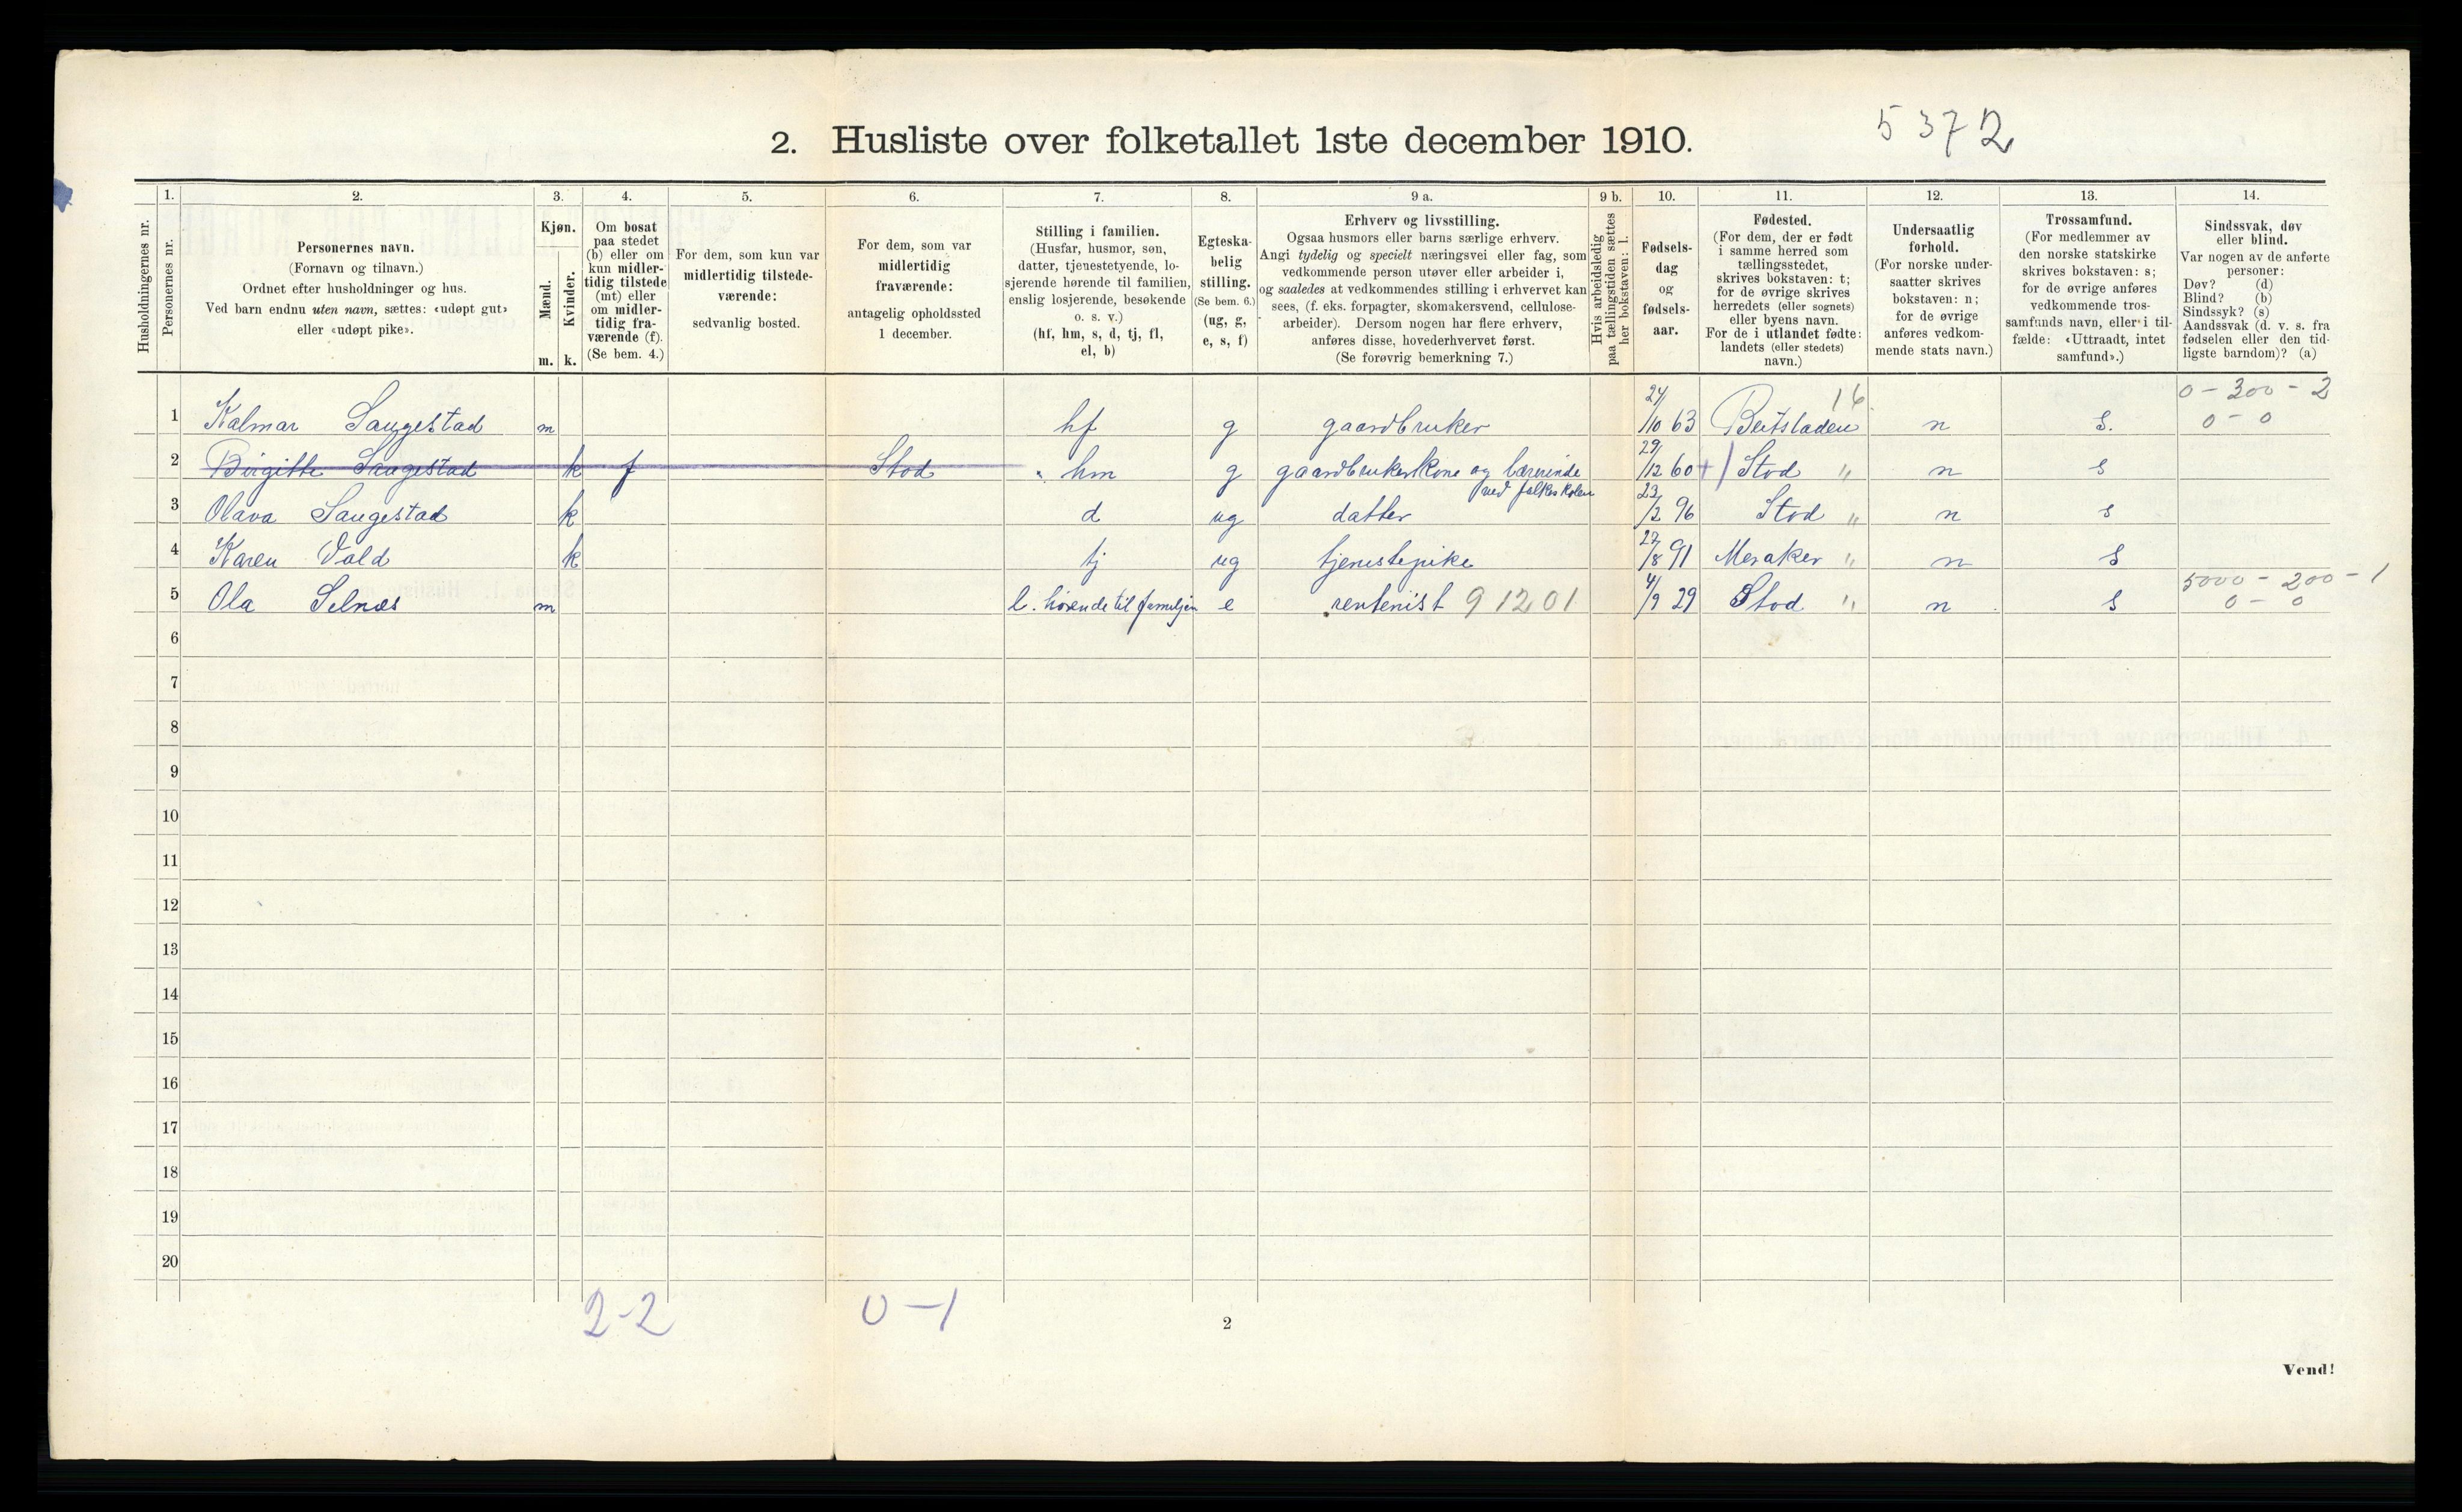 5372
2. Husliste over folketallet 1ste december 1910.
Husholdningernes nr.
1.
Personernes nr.
2.
Personernes navn.
(Fornavn og tilnavn.)
Ordnet efter husholdninger og hus.
Ved barn endnu uten navn, sættes: «udøpt gut»
eller «udøpt pike».
3.
Kjøn.
Mænd.
Kvinder.
m. k.
4.
Om bosat
paa stedet
(b) eller om
kun midler-
tidig tilstede
(mt) eller
om midler-
tidig fra-
værende (f).
(Se bem. 4.)
5.
For dem, som kun var
midlertidig tilstede-
værende:
sedvanlig bosted.
6.
For dem, som var
midlertidig
fraværende:
antagelig opholdssted
1 december.
7.
Stilling i familien.
(Husfar, husmor, søn,
datter, tjenestetyende, lo-
sjerende hørende til familien,
enslig losjerende, besøkende
o. s. v.)
(hf, hm, s, d, tj, fl,
el, b)
8.
Egteska-
belig
stilling.
(Se bem. 6.)
(ug, g,
e, s, f)
9 a.
Erhverv og livsstilling.
Ogsaa husmors eller barns særlige erhverv.
Angi tydelig og specielt næringsvei eller fag, som
vedkommende person utøver eller arbeider i,
og saaledes at vedkommendes stilling i erhvervet kan
sees, (f. eks. forpagter, skomakersvend, cellulose-
arbeider). Dersom nogen har flere erhverv,
anføres disse, hovederhvervet først.
(Se forøvrig bemerkning 7.)
9 b.
Hvis arbeidsledig
paa tællingstiden sættes
her bokstaven: l.
10.
Fødsels-
dag
og
fødsels-
aar.
11.
Fødested.
(For dem, der er født
i samme herred som
tællingsstedet,
skrives bokstaven: t;
for de øvrige skrives
herredets (eller sognets)
eller byens navn.
For de i utlandet fødte:
landets (eller stedets)
navn.)
12.
Undersaatlig
forhold.
(For norske under-
saatter skrives
bokstaven: n;
for de øvrige
anføres vedkom-
mende stats navn.)
13.
Trossamfund.
(For medlemmer av
den norske statskirke
skrives bokstaven: s;
for de øvrige anføres
vedkommende tros-
samfunds navn, eller i til-
fælde: «Uttraadt, intet
samfund».)
14.
Sindssvak, døv
eller blind.
Var nogen av de anførte
personer:
Døv? (d)
Blind? (b)
Sindssyk? (s)
Aandssvak (d. v. s. fra
fødselen eller den tid-
ligste barndom)? (a)
16 0 - 300 - 2
1 Kalmar Saugestad m hf g gaardbruker 24/10 63 Beitstaden n s. 0 - 0
2 Birgitte Saugestad k f Stod hm g gaardbrukerkone og lærerinde 29/12 60 + Stod " n s
ved folkeskolen
3 Olava Saugestad k d ug datter 23/2 96 Stod " n s
4 Karen Vold k tj ug tjenestepike 27/8 91 Meraker " n s
5000 - 200 - 1
5 Ola Selnæs m l. hørende til familjen e rentenist 91201 4/9 29 Stod " n s 0 - 0
6
7
8
9
10
11
12
13
14
15
16
17
18
19
20
2-2 0-1
2
Vend!